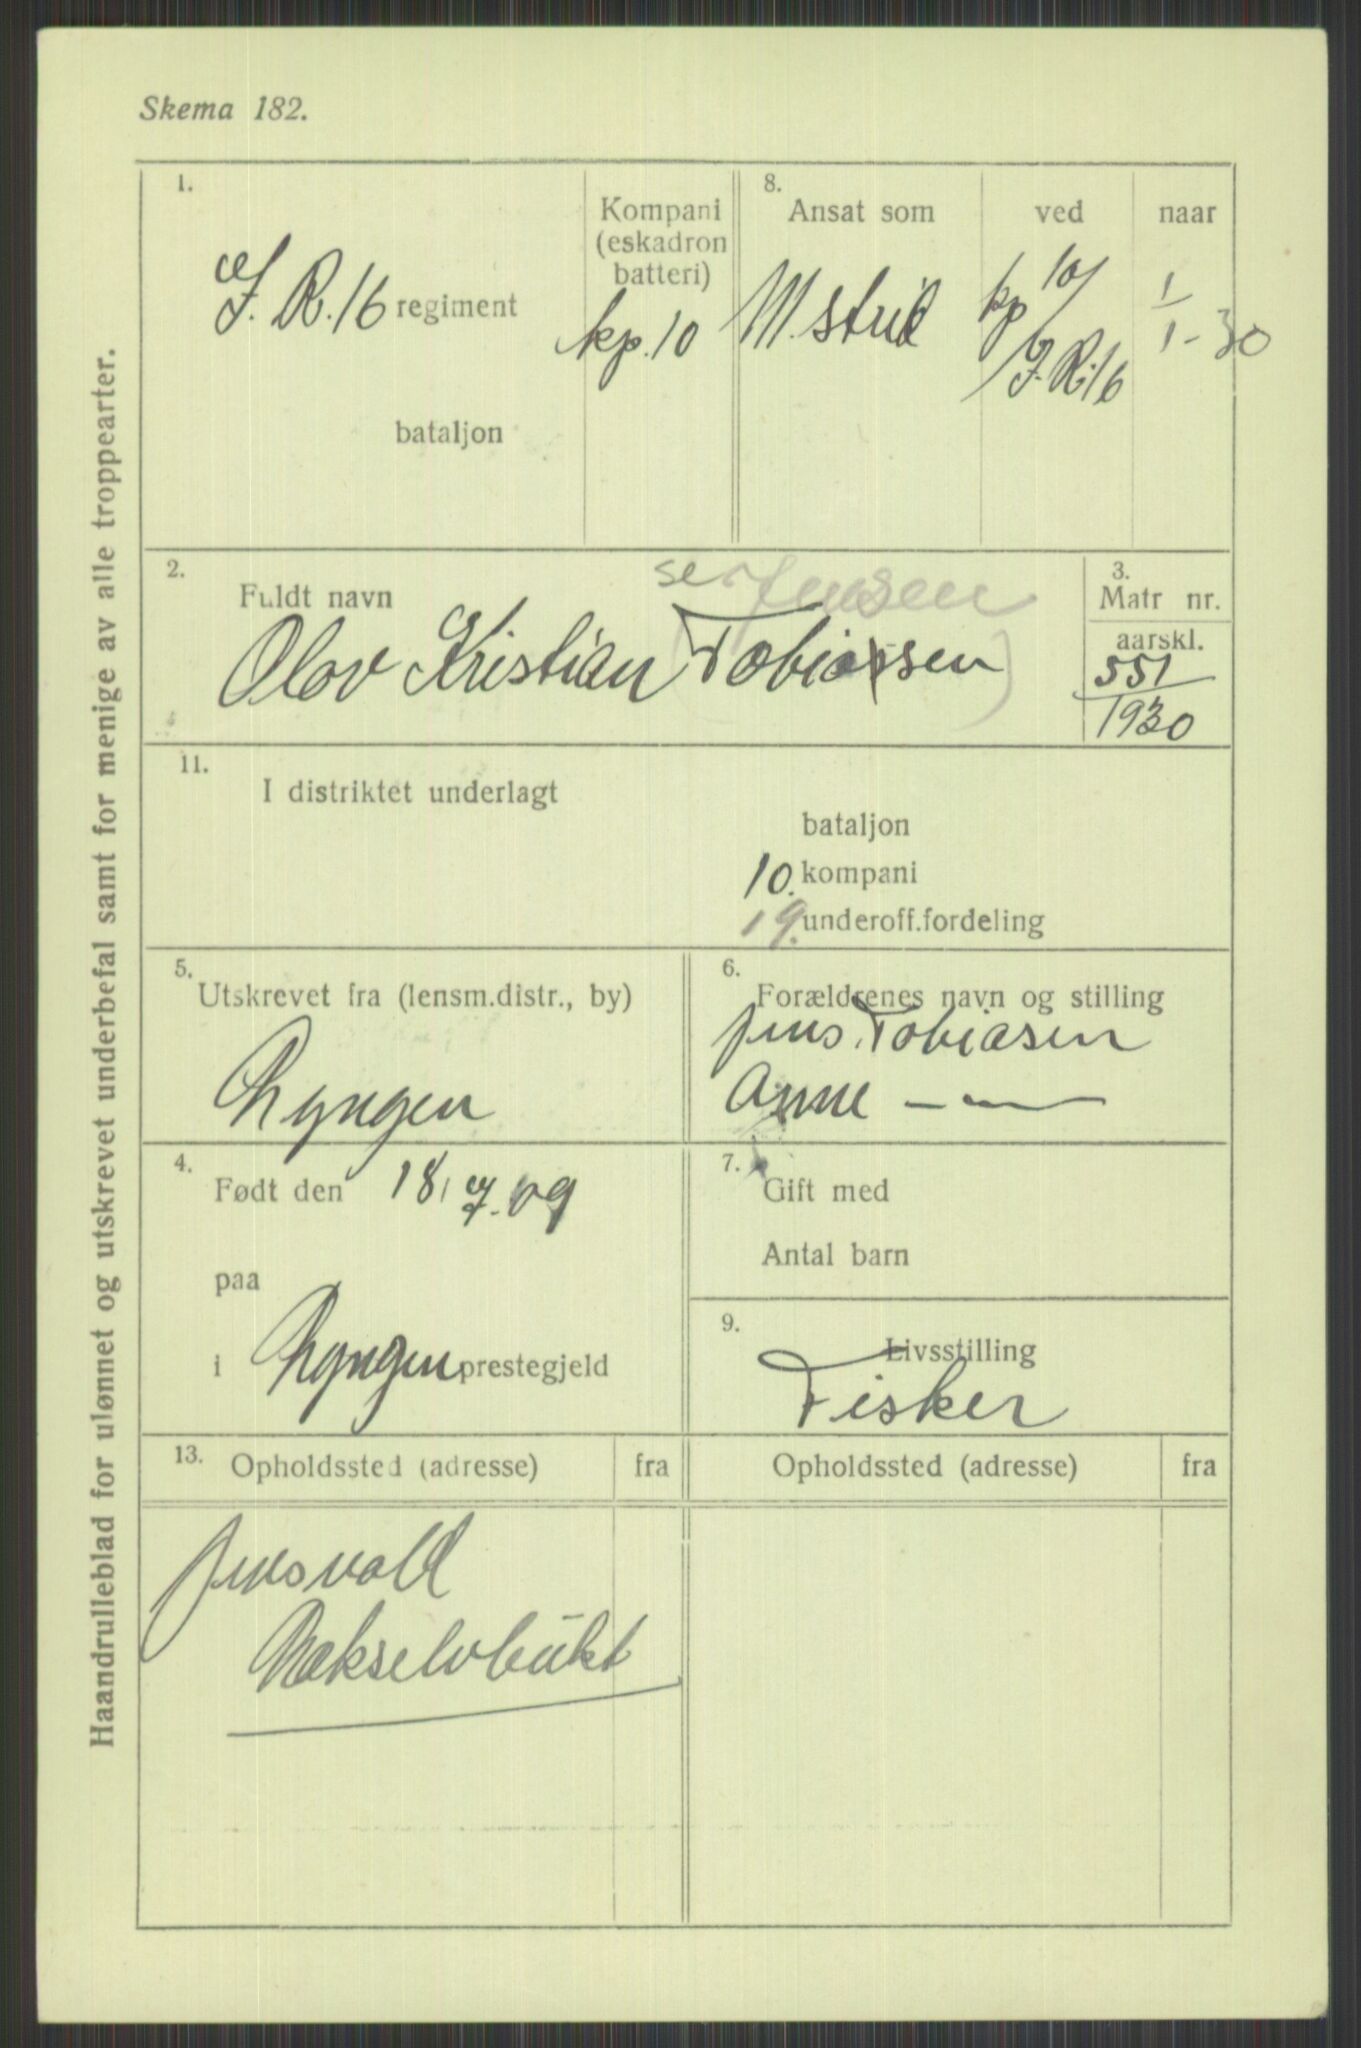 Skema 182.
Haandrulleblad for ulønnet og utskrevet underbefal samt for menige av alle troppearter.
1.
J. R. 16 regiment
bataljon
Kompani
(eskadron
batteri)
kp. 10
8.
Ansat som
M. strid
ved
kp 10/
J. R. 16
naar
1/1-30
2.
Fuldt navn
se Jensen
Olav Kristian (Tobiassen)
3.
Matr nr.
aarskl.
551
1930
11.
I distriktet underlagt
bataljon
10. kompani
19. underoff.fordeling
5.
Utskrevet fra (lensm.distr., by)
Lyngen
6.
Forældrenes navn og stilling
Jens Tobiasen
Anne — —
4.
Født den 18/7.09
paa
i Lyngen prestegjeld
7.
Gift med
Antal barn
9.
Livsstilling
Fisker
13.
Opholdssted (adresse)
fra
Opholdssted (adresse)
fra
Jensvold
Rakselvbukt